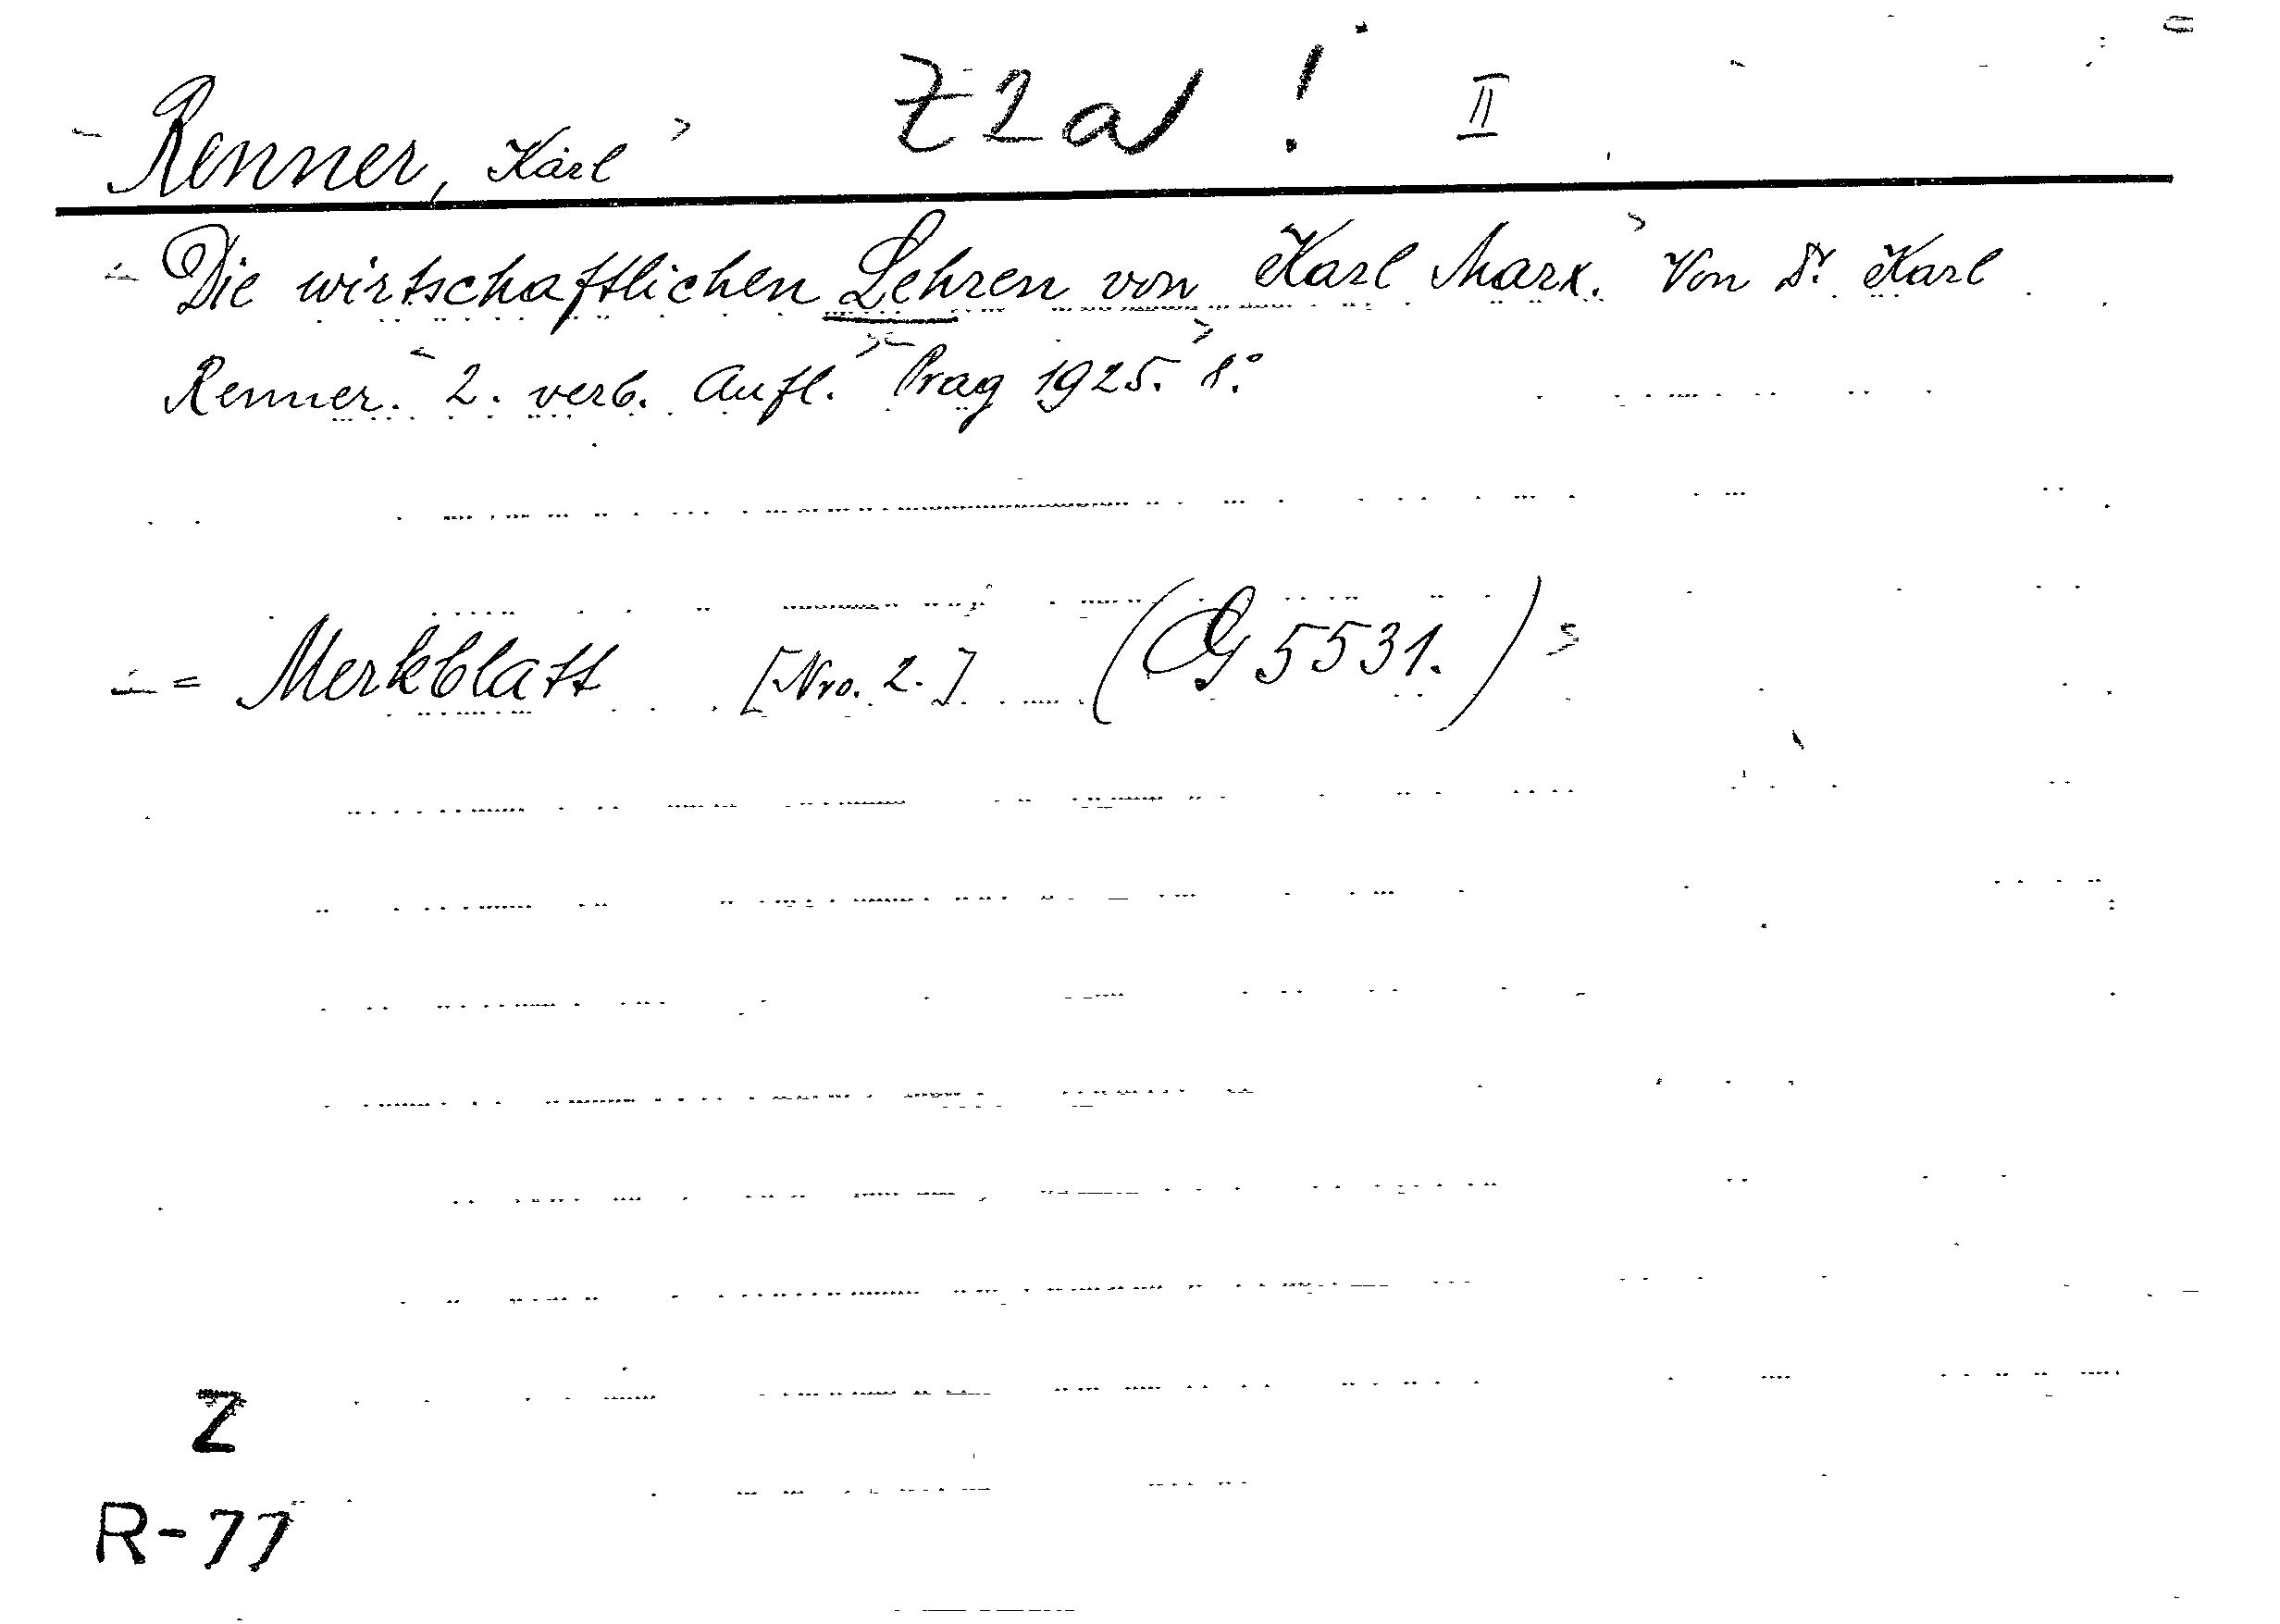 Renner, Karl Z2a ! II
Die wirtschaftlichen Lehren von Karl Marx. Von Dr. Karl
Renner. 2. verb. Aufl. Prag 1925. 8°.
= Merkblatt [Nro. 2.] (G 5531.)
Z
R-77